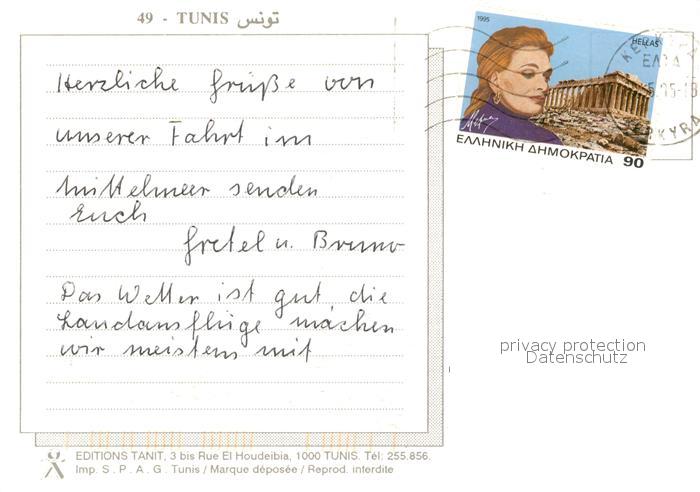 49 - TUNIS تونس
Herzliche Grüße von
unserer Fahrt im
Mittelmeer senden
Euch
Gretel u. Bruno
Das Wetter ist gut, die
Landausflüge machen
wir meistens mit
EDITIONS TANIT, 3 bis Rue El Houdeibia, 1000 TUNIS. Tél: 255.856.
Imp. S. P. A. G. Tunis / Marque déposée / Reprod. interdite
1995
HELLAS
ΕΛΛΗΝΙΚΗ ΔΗΜΟΚΡΑΤΙΑ 90
privacy protection
Datenschutz